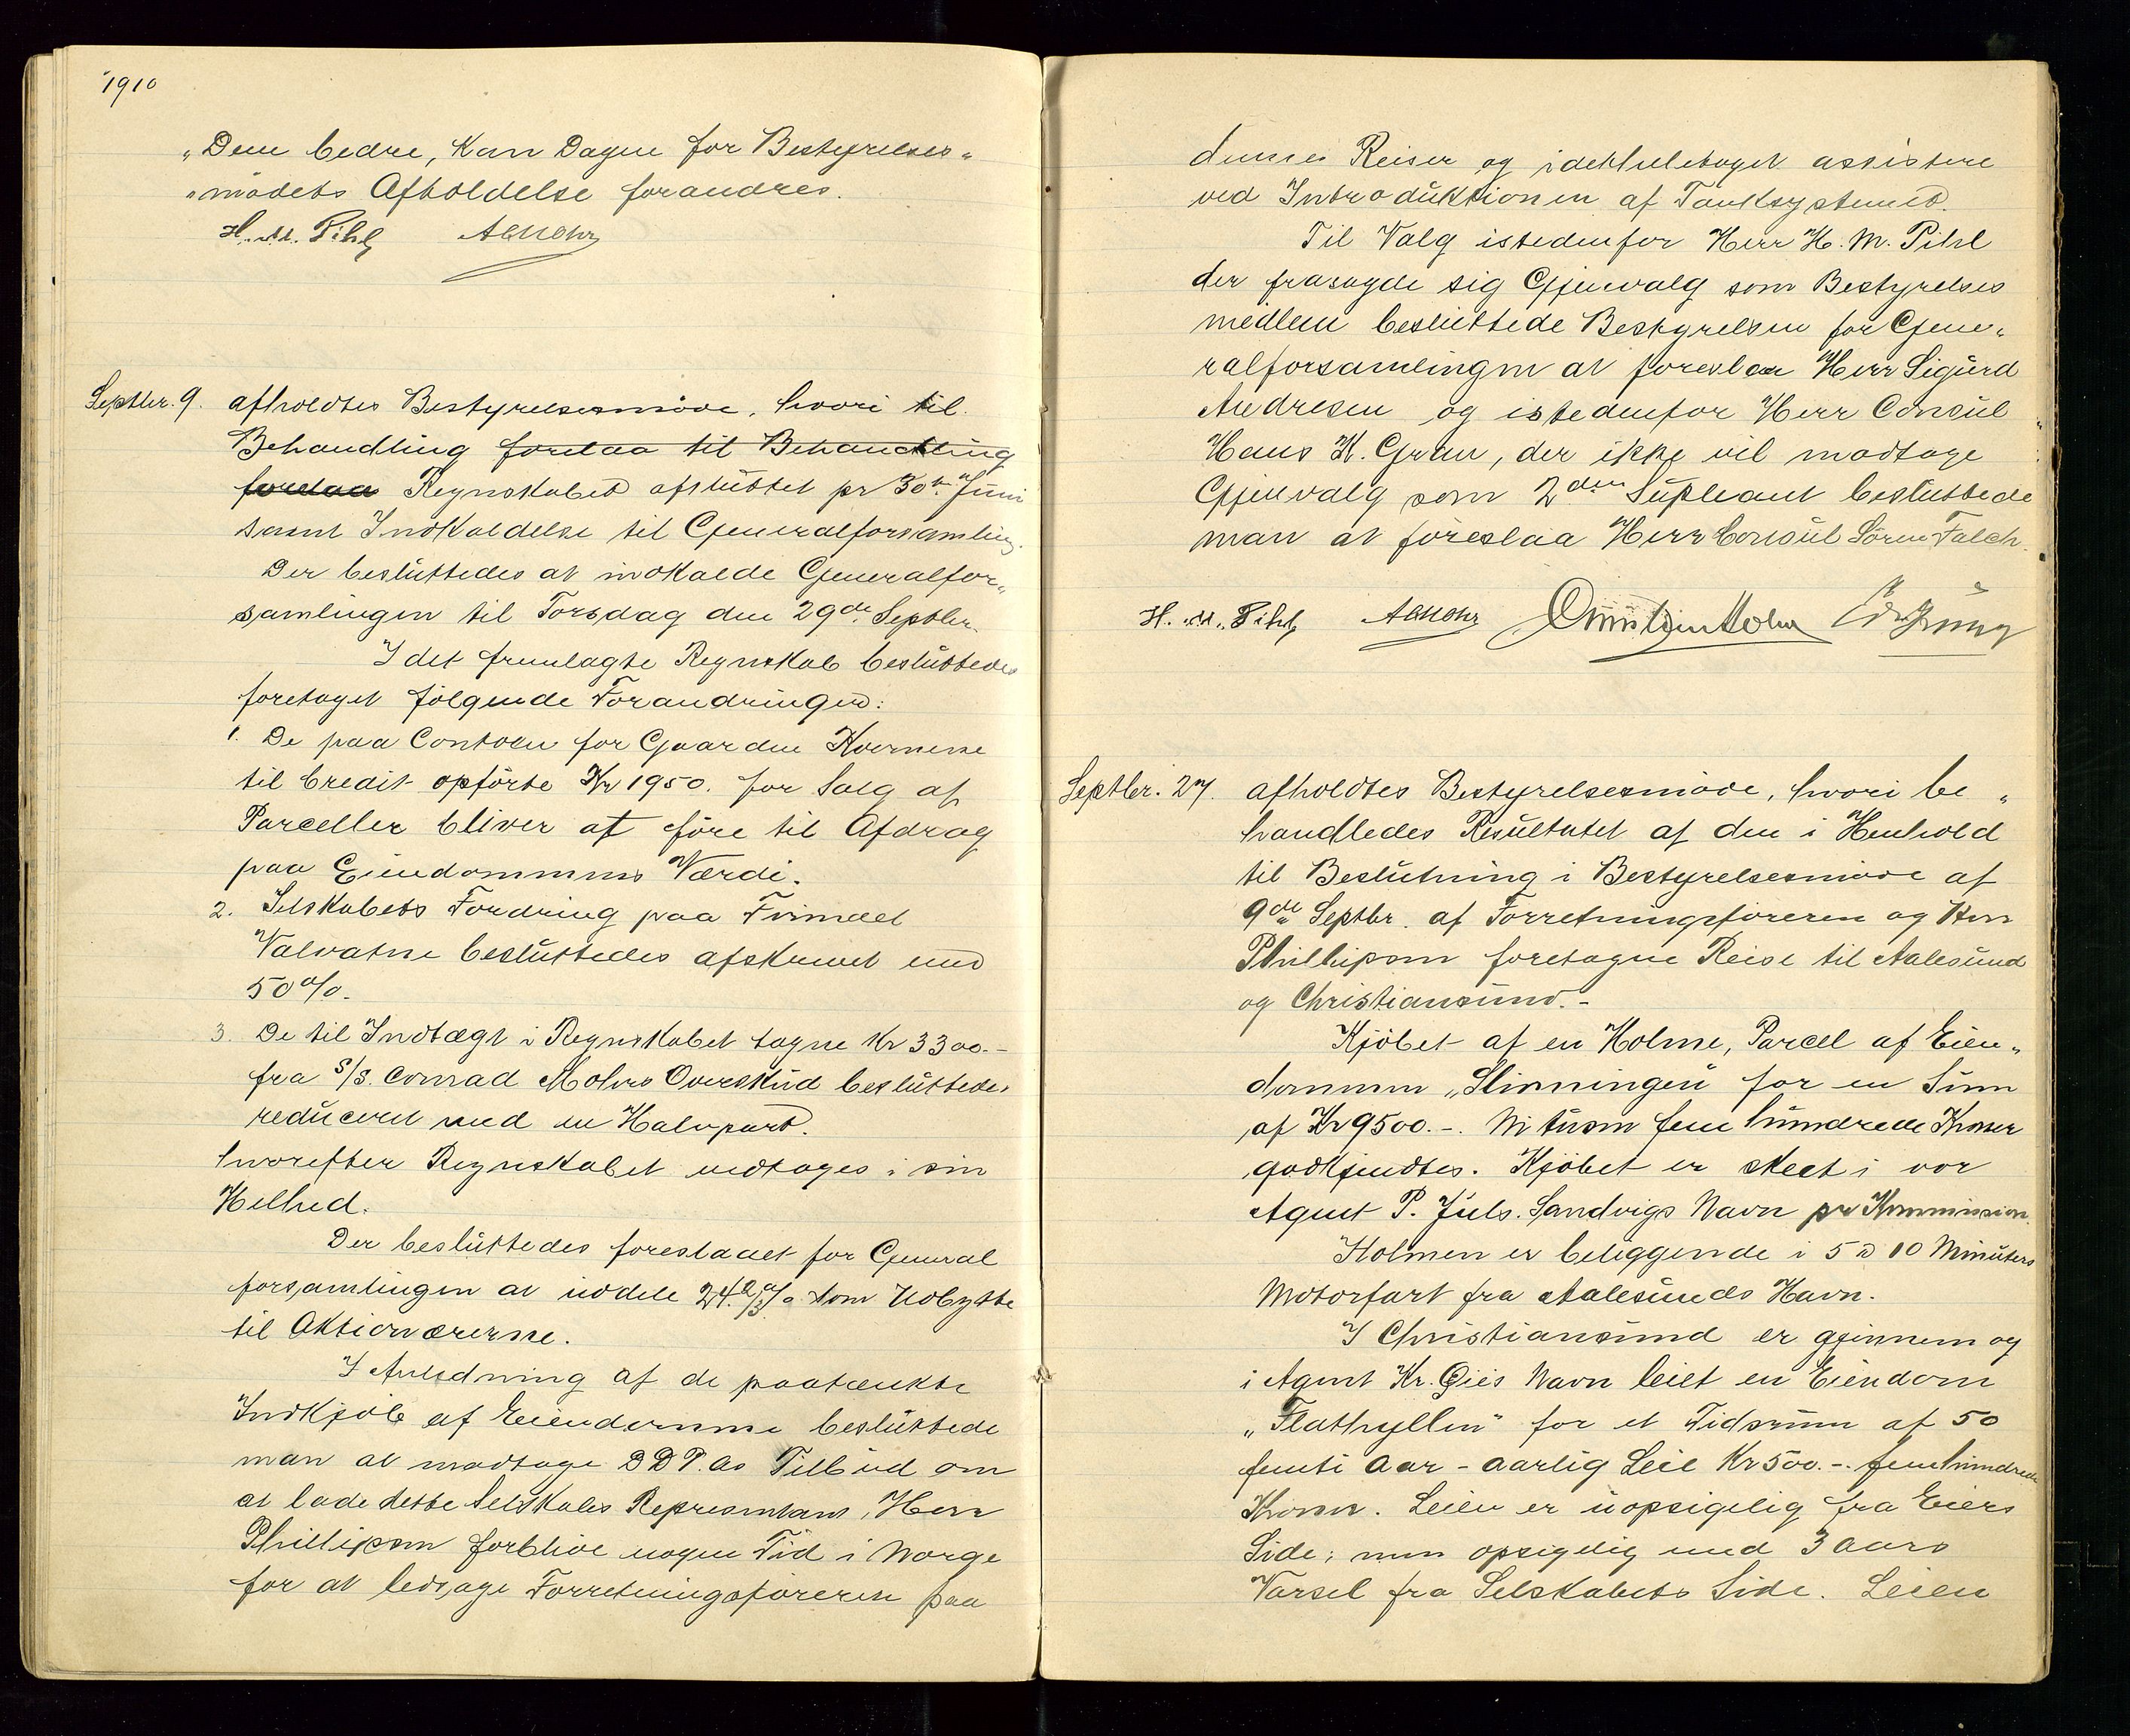 1910
„Dem bedre, kan Dagen for Bestyrelses„
„mødets Afholdelse forandres.
H. M. Pihl AcMohr
Septbr. 9. afholdtes Bestyrelsesmøde, hvori til
Behandling forelaa til Behandling
forelaa Regnskabet afsluttet pr 30te Juni
samt Indkaldelse til Generalforsamling.
Der besluttedes at indkalde Generalfor„
samlingen til Torsdag den 29de Septbr.
I det fremlagte Regnskab besluttedes
foretaget følgende Forandringer:
1. De paa Contoen for Gaarden Kvernene
til Credit opførte Kr 1950. for Salg af
Parceller bliver at føre til Afdrag
paa Eiendommens Værdi.
2. Selskabets Fordring paa Firmaet
Valvatne besluttedes afskrevet med
50 %.
3. De til Indtægt i Regnskabet tagne Kr 3300.-
fra S/S. Conrad Mohrs Overskud besluttedes
reduceret med en Halvpart.
hvorefter Regnskabet vedtages i sin
Helhed.
Der besluttedes foreslaaet for General
forsamlingen at uddele 24.2/3 % som Udbytte
til Aktionærerne.
I Anledning af de paatænkte
Indkjøb af Eiendomme besluttede
man at modtage D D P. As Tilbud om
at lade dette Selskabs Repræsentant, Herr
Phillipsen forblive nogen Tid i Norge
for at ledsage Forretningsføreren paa
dennes Reiser og idetheletaget assistere
ved Introduktionen af Tanksystemet.
Til Valg istedenfor Herr H. M. Pihl
der frasagde sig Gjenvalg som Bestyrelses
medlem besluttede Bestyrelsen for Gene„
ralforsamlingen at foreslaa Herr Sigurd
Andresen og istedenfor Herr Consul
Hans K. Gran, der ikke vil modtage
Gjenvalg som 2den Supleant besluttede
man at foreslaa Herr Consul Sören Falch.
H. M. Pihl AcMohr
Septbr. 27. afholdtes Bestyrelsesmøde, hvori be„
handledes Resultatet af den i Henhold
til Beslutning i Bestyrelsesmøde af
9de Septbr. af Forretningsføreren og Herr
Phillipsen foretagne Reise til Aalesund
og Christiansund.-
Kjöbet af en Holme, Parcel af Eien„
dommen „Slinningen" for en Sum
af Kr 9500.-. Ni tusen fem hundrede Kroner
godkjendtes. Kjöbet er skeet i vor
Agent P. Juls. Sandvigs Navn pr Kommission.
Holmen er beliggende i 5 à 10 Minuters
Motorfart fra Aalesunds Havn.
I Christiansund er gjennem og
i Agent Kr. Giæs Navn leiet en Eiendom
„Flathyllen" for et Tidsrum af 50
femti Aar - aarlig Leie Kr 500.-. femhundrede
Kroner. Leien er uopsigelig fra Eiers
Side; men opsigelig med 3 Aars
Varsel fra Selskabets Side. Leien